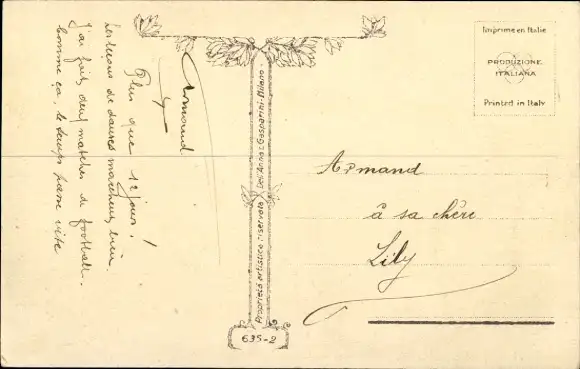 Plus que 12 jours!
Les leçons de danses marchent bien
J'ai fait deux matches de football.
Comme ça, le temps passe vite
Armand
Proprietà artistica riservata Dell'Anna & Gasparini-Milano
695-2
Imprime en Italie
PRODUZIONE
ITALIANA
Printed in Italy
Armand
à sa chère
Lily